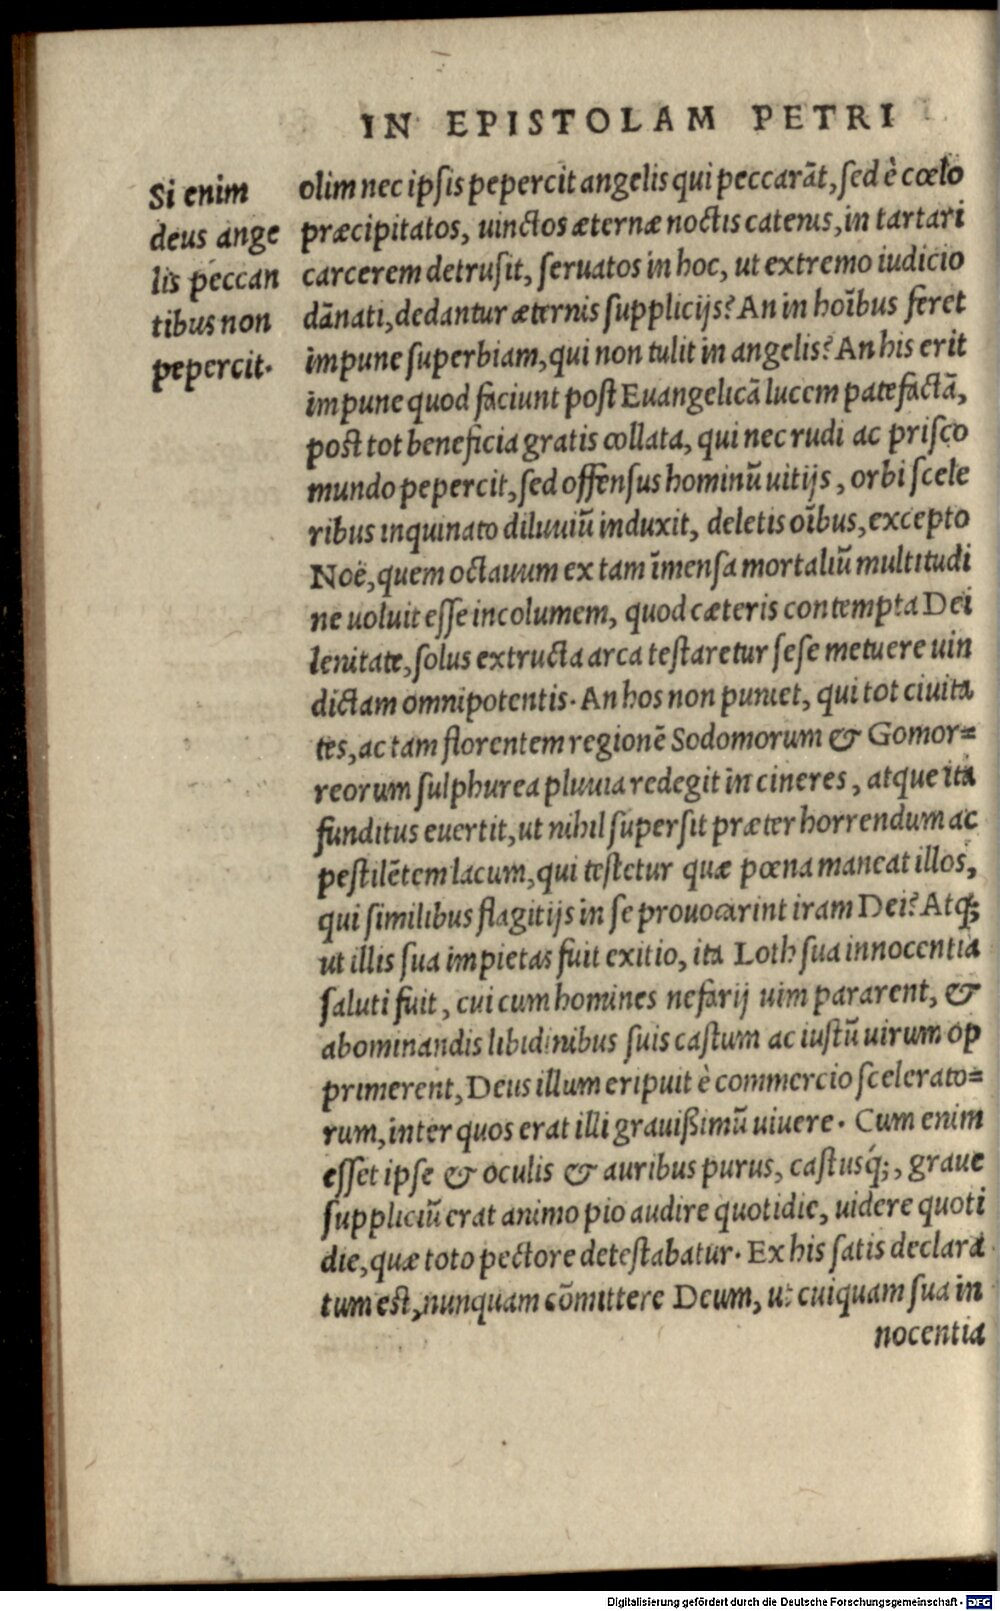 IN EPISTOLAM PETRI
Si enim
deus ange
lis peccan
tibus non
pepercit.
olim nec ipsis pepercit angelis qui peccarãt, sed è cœlo
præcipitatos, uinctos æternæ noctis catenis, in tartari
carcerem detrusit, seruatos in hoc, ut extremo iudicio
dãnati, dedantur æternis supplicijs? An in hoĩbus feret
impune superbiam, qui non tulit in angelis? An his erit
impune quod faciunt post Euangelicã lucem patefactã,
post tot beneficia gratis collata, qui nec rudi ac prisco
mundo pepercit, sed offensus hominũ uitijs, orbi scele
ribus inquinato diluuiũ induxit, deletis oĩbus, excepto
Noë, quem octauum ex tam ĩmensa mortaliũ multitudi
ne uoluit esse incolumem, quod cæteris contempta Dei
lenitate, solus extructa arca testaretur sese metuere uin
dictam omnipotentis. An hos non puniet, qui tot ciuita
tes, ac tam florentem regionẽ Sodomorum & Gomor=
reorum sulphurea pluuia redegit in cineres, atque ita
funditus euertit, ut nihil supersit præter horrendum ac
pestilẽtem lacum, qui testetur quæ pœna maneat illos,
qui similibus flagitijs in se prouocarint iram Dei? Atq;
ut illis sua impietas fuit exitio, ita Loth sua innocentia
saluti fuit, cui cum homines nefarij uim pararent, &
abominandis libidinibus suis castum ac iustũ uirum op
primerent, Deus illum eripuit è commercio scelerato=
rum, inter quos erat illi grauißimũ uiuere. Cum enim
esset ipse & oculis & auribus purus, castusq́;, graue
suppliciũ erat animo pio audire quotidie, uidere quoti
die, quæ toto pectore detestabatur. Ex his satis declara
tum est, nunquam cõmittere Deum, ut cuiquam sua in
nocentia
Digitalisierung gefördert durch die Deutsche Forschungsgemeinschaft - DFG